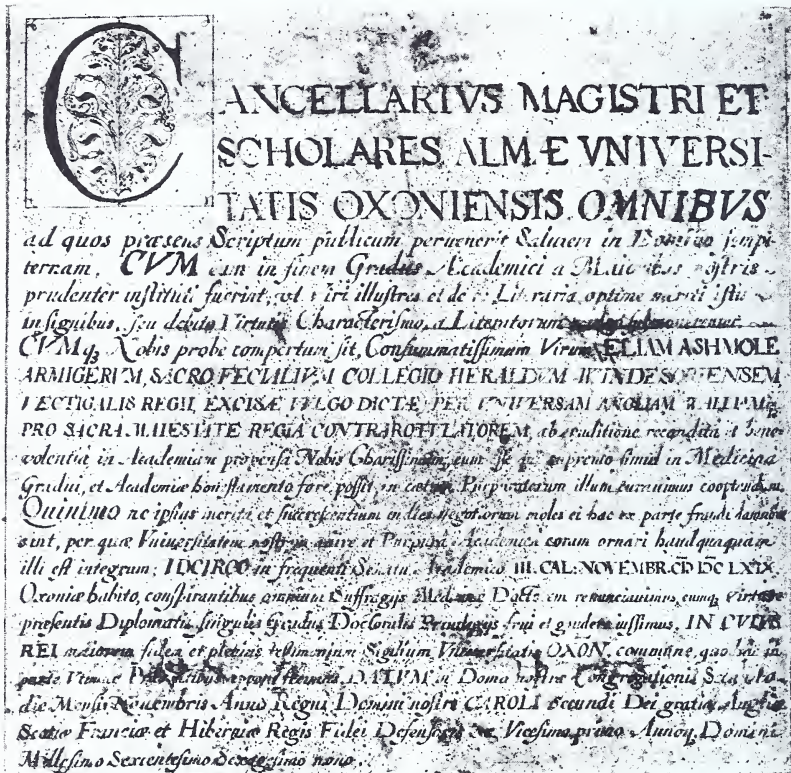 CANCELLARIVS MAGISTRI ET
SCHOLARES ALMÆ VNIVERSI-
TATIS OXONIENSIS OMNIBVS
ad quos præsens Scriptum publicum peruenerit Salutem in Domino sempi-
ternam. CVM eum in finem Gradus Academici a Maioribus nostris
prudenter instituti fuerint, vt Viri illustres et de Re Literaria optime meriti istis
insignibus, seu debito Virtutis Characterismo, a Literatorum
CVMq; Nobis probe compertum sit, Consummatissimum Virum ELIAM ASHMOLE
ARMIGERVM, SACRO FECIALIVM COLLEGIO HERALDVM WINDESORIENSEM,
VECTIGALIS REGII, EXCISÆ VVLGO DICTÆ PER VNIVERSAM ANGLIAM WALLIAMq;
PRO SACRA MAIESTATE REGIA CONTRAROTTLATOREM, ab eruditione recondita et bene-
volentia in Academiam propensa Nobis Charissimum, cum supremo simul in Medicina
Gradui, et Academiæ honestamento fore possit, in cœtum Purpuratorum illum curauimus cooptandum
Quinimo ne ipsius merita et succrescentium indies negotiorum moles ei hac ex parte fraudi
sint, per quæ Vniuersitatem nostram et Purpura Academica coram ornari haudquaquam
illi est integrum; IDCIRCO in frequenti Senatu Academico III. CAL: NOVEMBR. CIƆ IƆC LXIX.
Oxoniæ habito, conspirantibus omnium Suffragijs Medicinæ Doctorem renunciauimus, eumq; virtute
præsentis Diplomatis singulis Gradus Doctoralis Priuilegijs frui et gaudere iussimus. IN CVIVS
REI maiorem fidem et plenius testimonium Sigillum Vniuersitatis OXON. commune, quo hac in
parte Vtimur DATVM in Domo nostræ Congregationis
die Mensis Nouembris Anno Regni Domini nostri CAROLI Secundi Dei gratia Angliæ
Scotiæ Franciæ et Hiberniæ Regis Fidei Defensoris &c Vicesimo primo Annoq; Domini
Millesimo Sexcentesimo Sexagesimo nono.